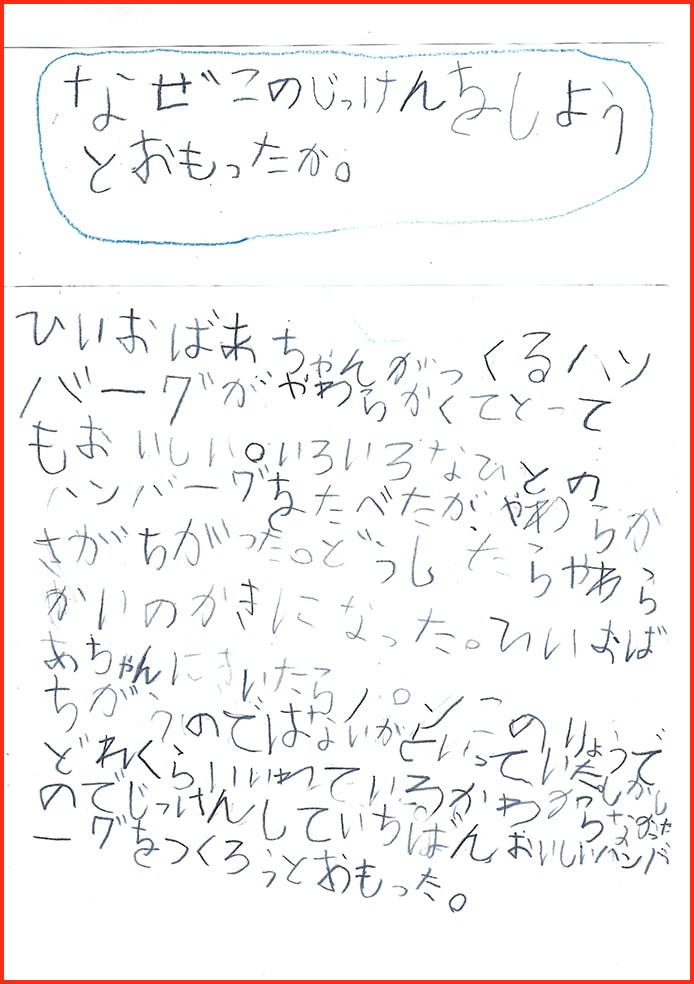 なぜこのじっけんをしよう
とおもったか。
ひいおばあちゃんがつくるハン
バーグがやわらかくてとって
もおいしい。いろいろなひとの
ハンバーグをたべたが、やわらか
さがちがった。どうしたらやわら
かいのかきになった。ひいおば
あちゃんにきいたら、パンこのりょうで
ちがうのではないかといっていた。しかし
どれくらいいれているかわからなかった
のでじっけんしていちばんおいしいハンバ
ーグをつくろうとおもった。